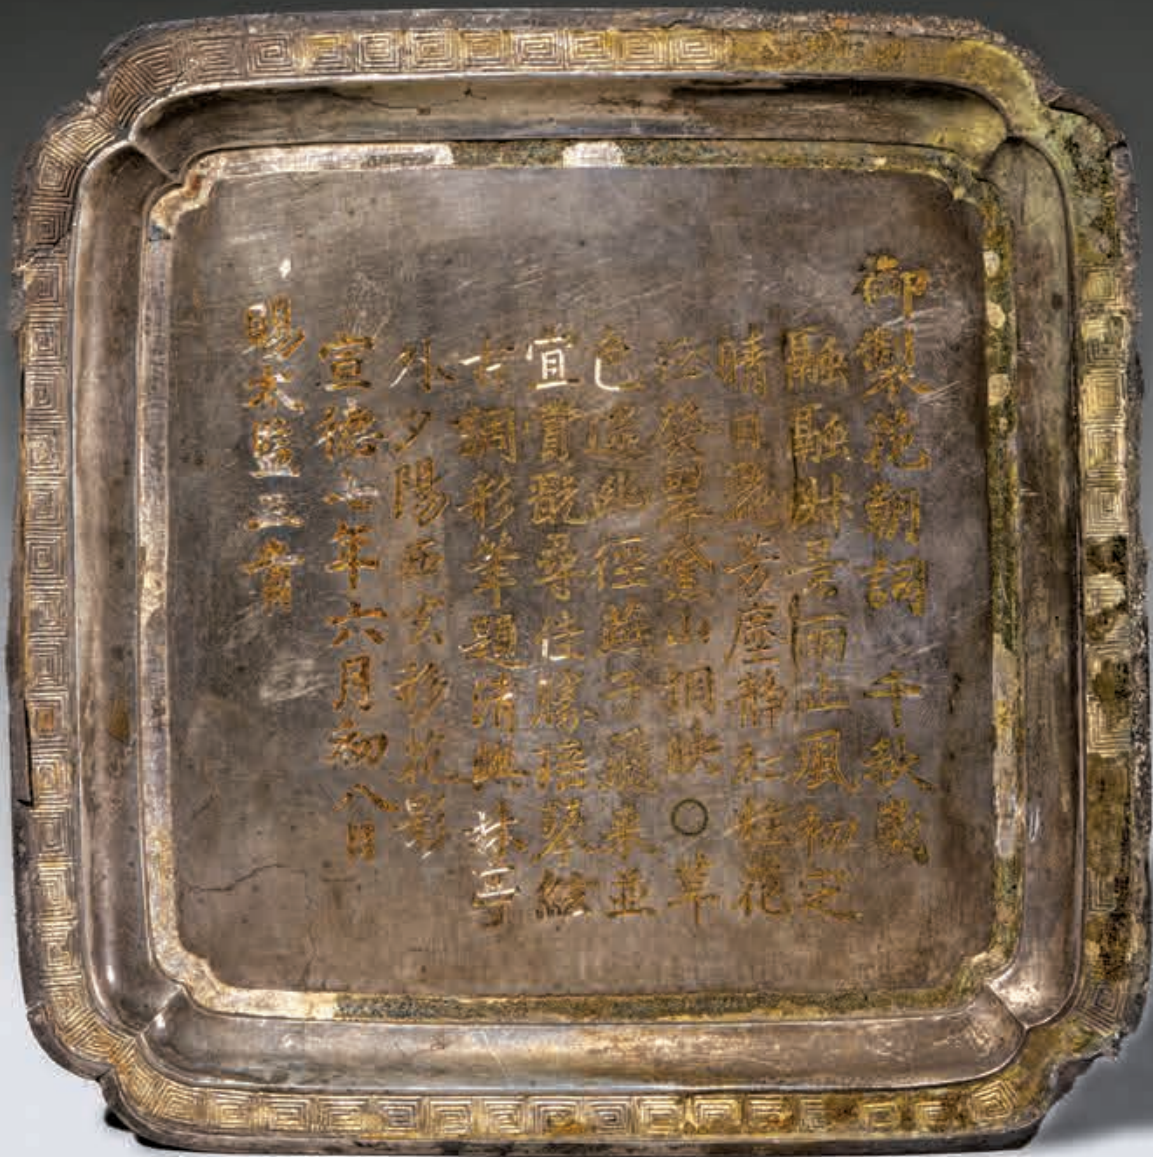 御製花朝詞 千秋歲
融融淑景雨止風初定
晴日麗芳塵靜紅粧花
發翠奩山相映〇草
色徑燕子飛來並
宜賞翫尋佳勝瑤琴絃
古調彩筆題清興林亭
外夕陽西去移花影
宣德七年六月初八日
賜太監王